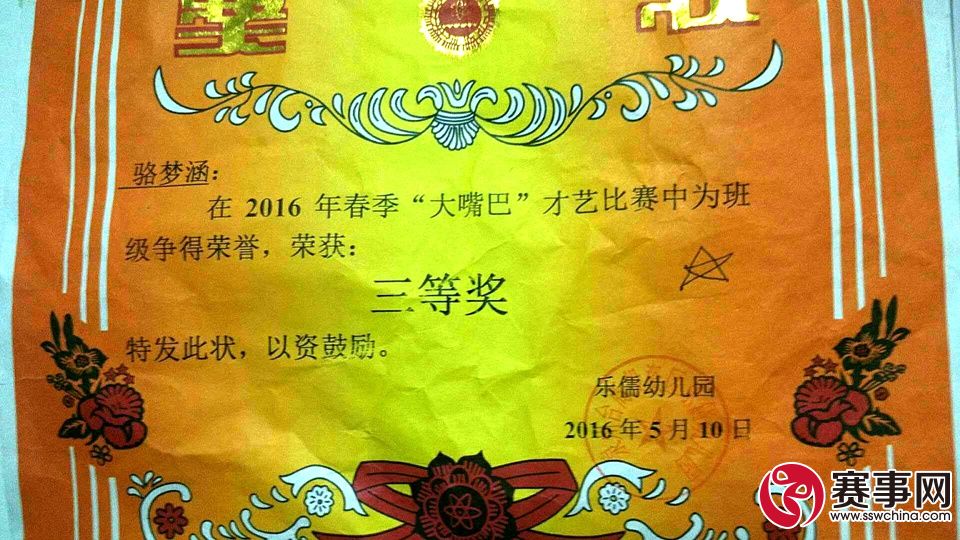 骆梦涵:
在 2016 年春季“大嘴巴”才艺比赛中为班
级争得荣誉，荣获:
三等奖
特发此状，以资鼓励。
乐儒幼儿园
2016 年 5 月 10 日
赛事网
www.sswchina.com